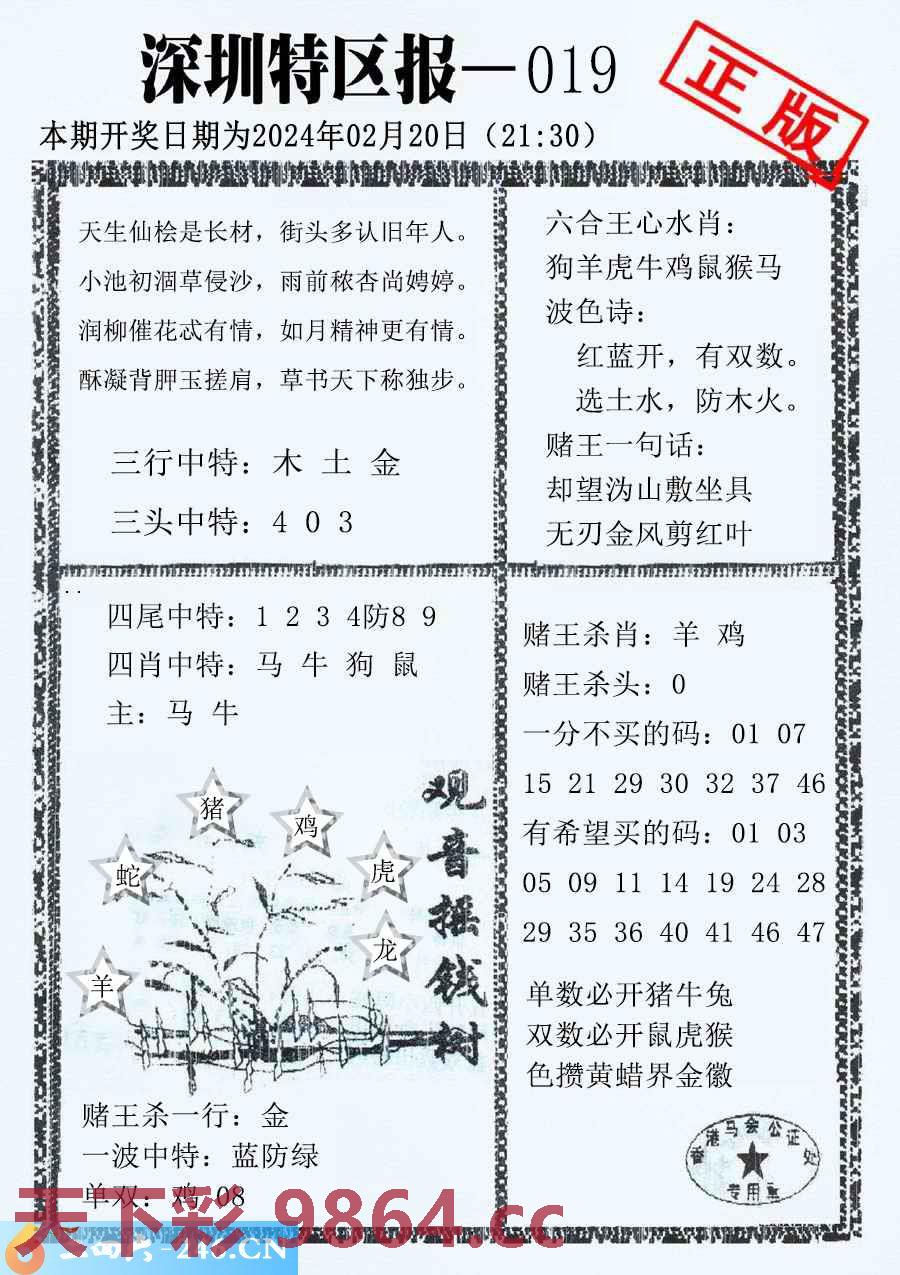 深圳特区报—019
正版
本期开奖日期为2024年02月20日（21:30）
天生仙桧是长材，街头多认旧年人。
小池初涸草侵沙，雨前秾杏尚娉婷。
润柳催花忒有情，如月精神更有情。
酥凝背胛玉搓肩，草书天下称独步。
三行中特：木 土 金
三头中特：4 0 3
六合王心水肖：
狗羊虎牛鸡鼠猴马
波色诗：
红蓝开，有双数。
选土水，防木火。
赌王一句话：
却望沩山敷坐具
无刃金风剪红叶
四尾中特：1 2 3 4防8 9
四肖中特：马 牛 狗 鼠
主：马 牛
猪
鸡
蛇
虎
龙
羊
观音摇钱树
赌王杀一行：金
一波中特：蓝防绿
单双：鸡 08
赌王杀肖：羊 鸡
赌王杀头：0
一分不买的码：01 07
15 21 29 30 32 37 46
有希望买的码：01 03
05 09 11 14 19 24 28
29 35 36 40 41 46 47
单数必开猪牛兔
双数必开鼠虎猴
色攒黄蜡界金徽
香港马会公证处
专用章
天下彩 9864.cc